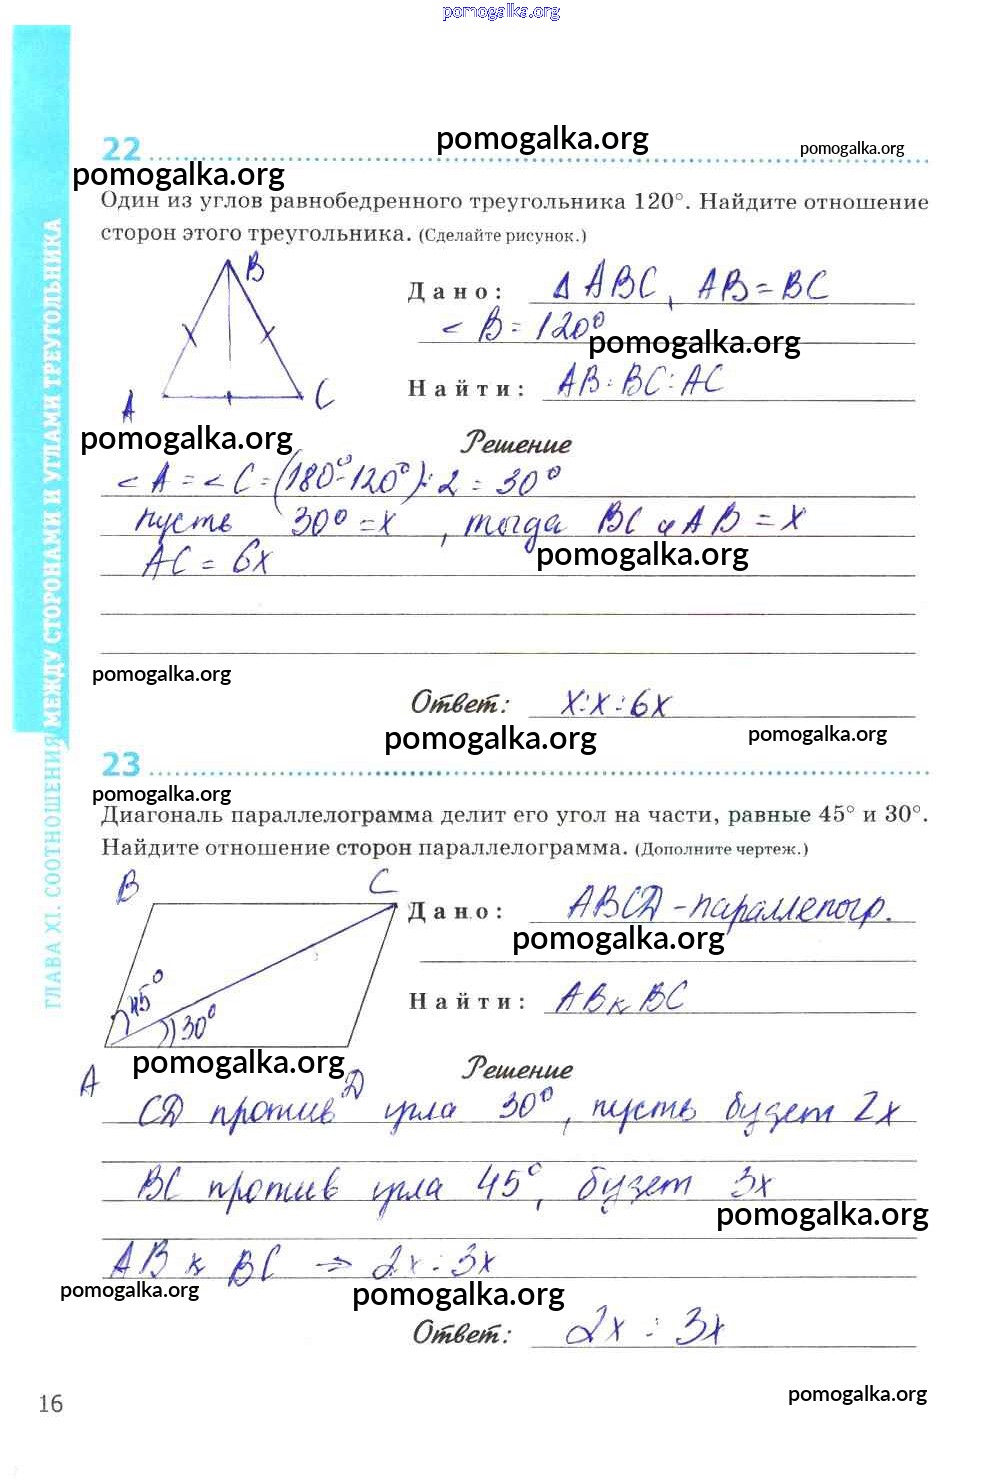 pomogalka.org
22
pomogalka.org
pomogalka.org
pomogalka.org
Один из углов равнобедренного треугольника 120°. Найдите отношение
сторон этого треугольника. (Сделайте рисунок.)
B
Дано: Δ ABC, AB = BC
< B = 120°
pomogalka.org
Найти: AB : BC : AC
A C
pomogalka.org
Решение
< A = < C = (180° - 120°) : 2 = 30°
пусть 30° = x, тогда BC и AB = x
pomogalka.org
AC = 6x
pomogalka.org
Ответ: x : x : 6x
pomogalka.org
pomogalka.org
23
pomogalka.org
Диагональ параллелограмма делит его угол на части, равные 45° и 30°.
Найдите отношение сторон параллелограмма. (Дополните чертеж.)
B C
Дано: ABCD - параллелогр.
pomogalka.org
Найти: AB к BC
45°
30°
pomogalka.org
A D
Решение
CD против угла 30°, пусть будет 2x
BC против угла 45°, будет 3x
pomogalka.org
AB к BC ⇒ 2x : 3x
pomogalka.org
pomogalka.org
Ответ: 2x : 3x
16
pomogalka.org
ГЛАВА XI. СООТНОШЕНИЯ МЕЖДУ СТОРОНАМИ И УГЛАМИ ТРЕУГОЛЬНИКА